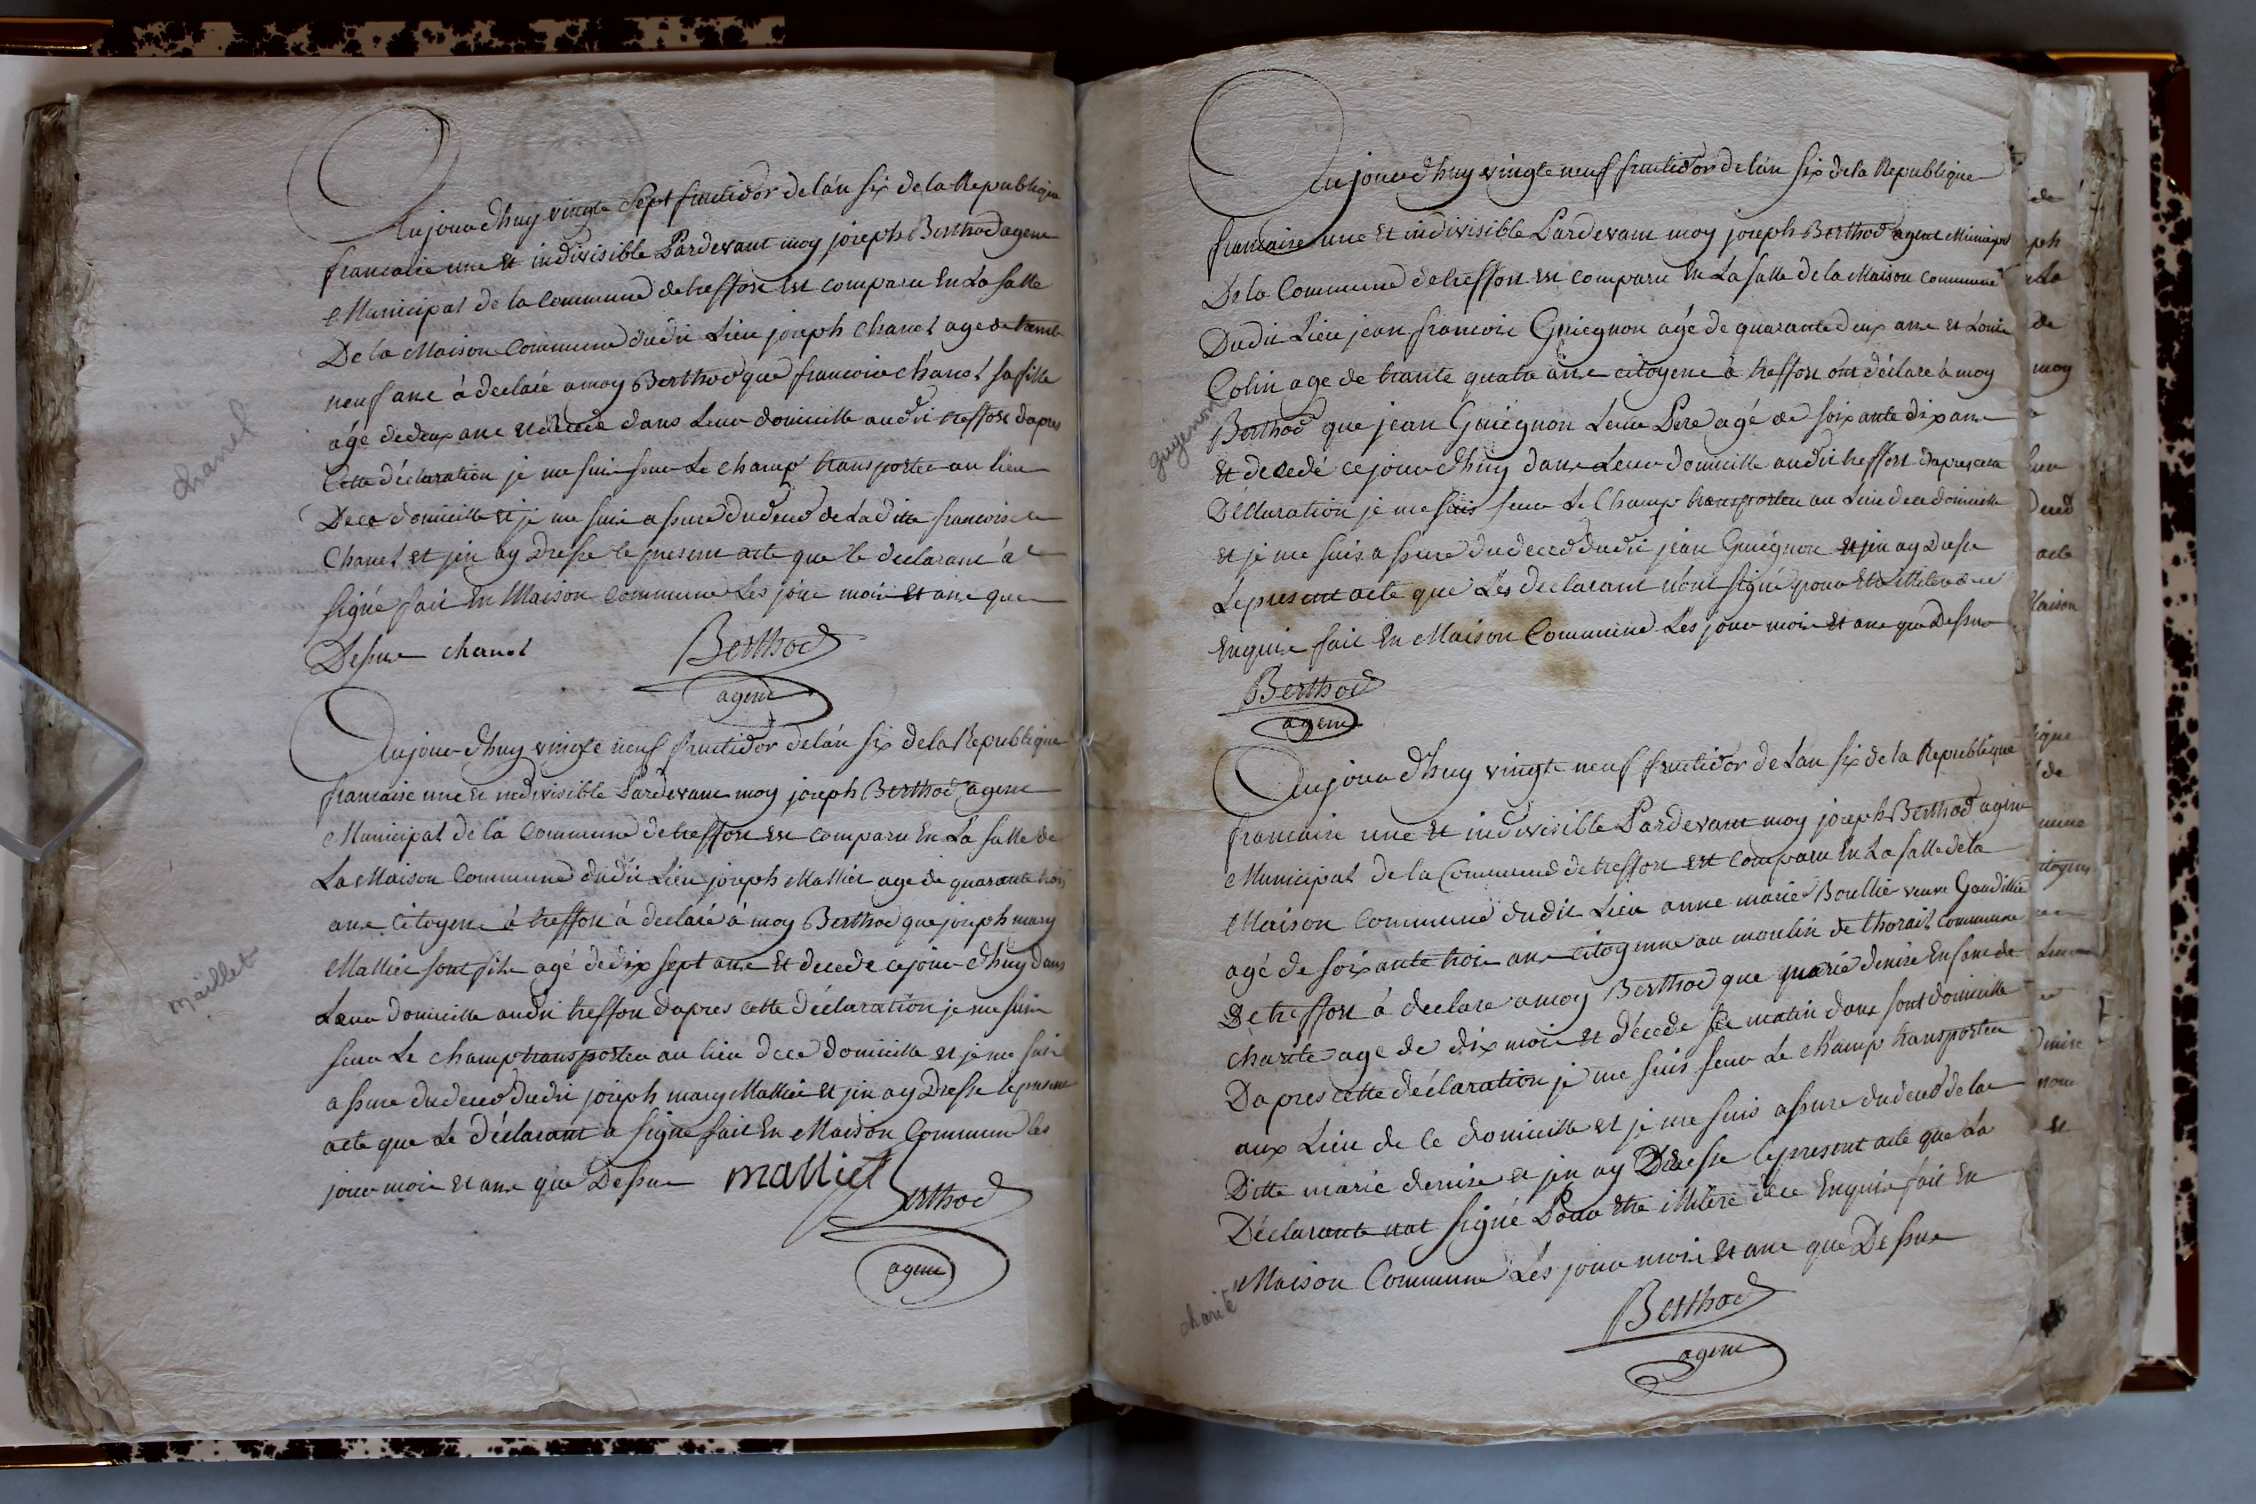 Aujourdhuy vingte Sept fructidor de lán Six de la Republique
francaise une Et indivisible Pardevant moy joseph Berthod agent
Municipal de la Commune de treffort Est comparu En La Salle
De la Maison Commune dudit Lieu joseph chanel age de trente
neuf ans à declaré a moy Berthod que francoise chanel sa fille
agé de deux ans et decede dans Leur domicille audit treffort dapres
Cette déclaration je me suis seur Le champ transporter au lieu
De ce domicille et je me suis assure du deces de La dite francoise
Chanel et jen ay Dresse le present acte que le declarant á
signé fait En Maison Commune Les jour mois Et ans que
Dessus chanel
Berthod
agent
chanel
Aujour dhuy vingte neuf fructidor de lán Six de la Republique
francaise une et indivisible Pardevant moy joseph Berthod agent
Municipal de la Commune de treffort est comparu En La Salle de
La Maison Commune dudit Lieu joseph Malliet age de quarante trois
ans Citoyens à treffort á declaré á moy Berthod que joseph mary
Malliet sont fils agé de dix sept ans Et decede ce jour dhuy dans
Leur domicille audit treffort dapres cette déclaration je me suis
seur Le champ transporter au lieu de ce domicille et je me suis
assure du deces dudit joseph mary Malliet et jen ay Dresse le present
acte que Le déclarant a signe fait En Maison Commune Les
jour mois Et ans que Dessus malliet
Berthod
agent
maillet
Aujour dhuy vingte neuf fructidor de lán Six de la Republique
francaise une Et indivisible Pardevant moy joseph Berthod agent Municipal
De la Commune de treffort est comparu En La Salle de la Maison Commune
Dudit Lieu jean francois Guiegnon agé de quarante deux ans et Louis
Colin age de trante quatre ans citoyens à treffort ont déclaré à moy
Berthod que jean Guiegnon Leur Pere agé de soixante dix ans
Et decedé ce jour dhuy dans Leur domicille audit treffort dapres cette
Déclaration je me suis seur Le Champ transporter au Lieu de ce domicille
et je me suis assure du deces dudit jean Guiegnon et jen ay Dresse
Le present acte que Les declarant nont signé pour Etre illitere de ce
Enquis fait En Maison Commune Les jour mois Et ans que Dessus
Berthod
agent
guyenon
Aujour dhuy vingte neuf fructidor de Lan Six de la Republique
francaise une et indivisible Pardevant moy joseph Berthod agent
Municipal de la Commune de treffort est Comparu En La Salle de la
Maison Commune dudit Lieu anne marie Boullie veuve Gaudillie
agé de soixante trois ans citoyenne au moulin de thorait Commune
De treffort á declare a moy Berthod que marie denise Enfant de
charite age de dix mois et décede se matin dans sont domicille
Dapres cette déclaration je me suis seur Le champ transporter
aux Lieu de Ce domicille et je me suis assure du deces de la
Ditte marie denise et jen ay Dresse le present acte que La
Déclarante nat Signé Pour Etre illitere de ce Enquis fait En
Maison Commune Les jour mois Et ans que Dessus
Berthod
agent
charité
de
la
de
moy
acte
Maison
de
Denise
et